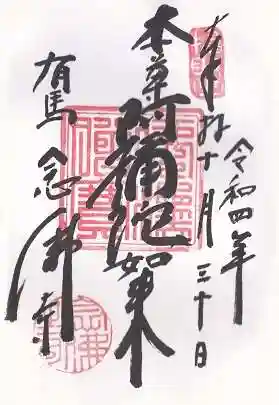 奉拝
令和四年
十月三十日
本尊阿彌陀如来
有馬
念佛寺